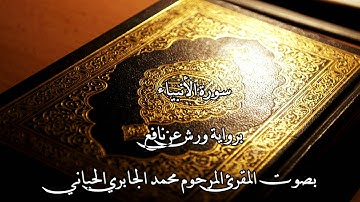 سورة الأنبياء
برواية ورش عن نافع
بصوت المقرئ المرحوم محمد الجابري الحياني